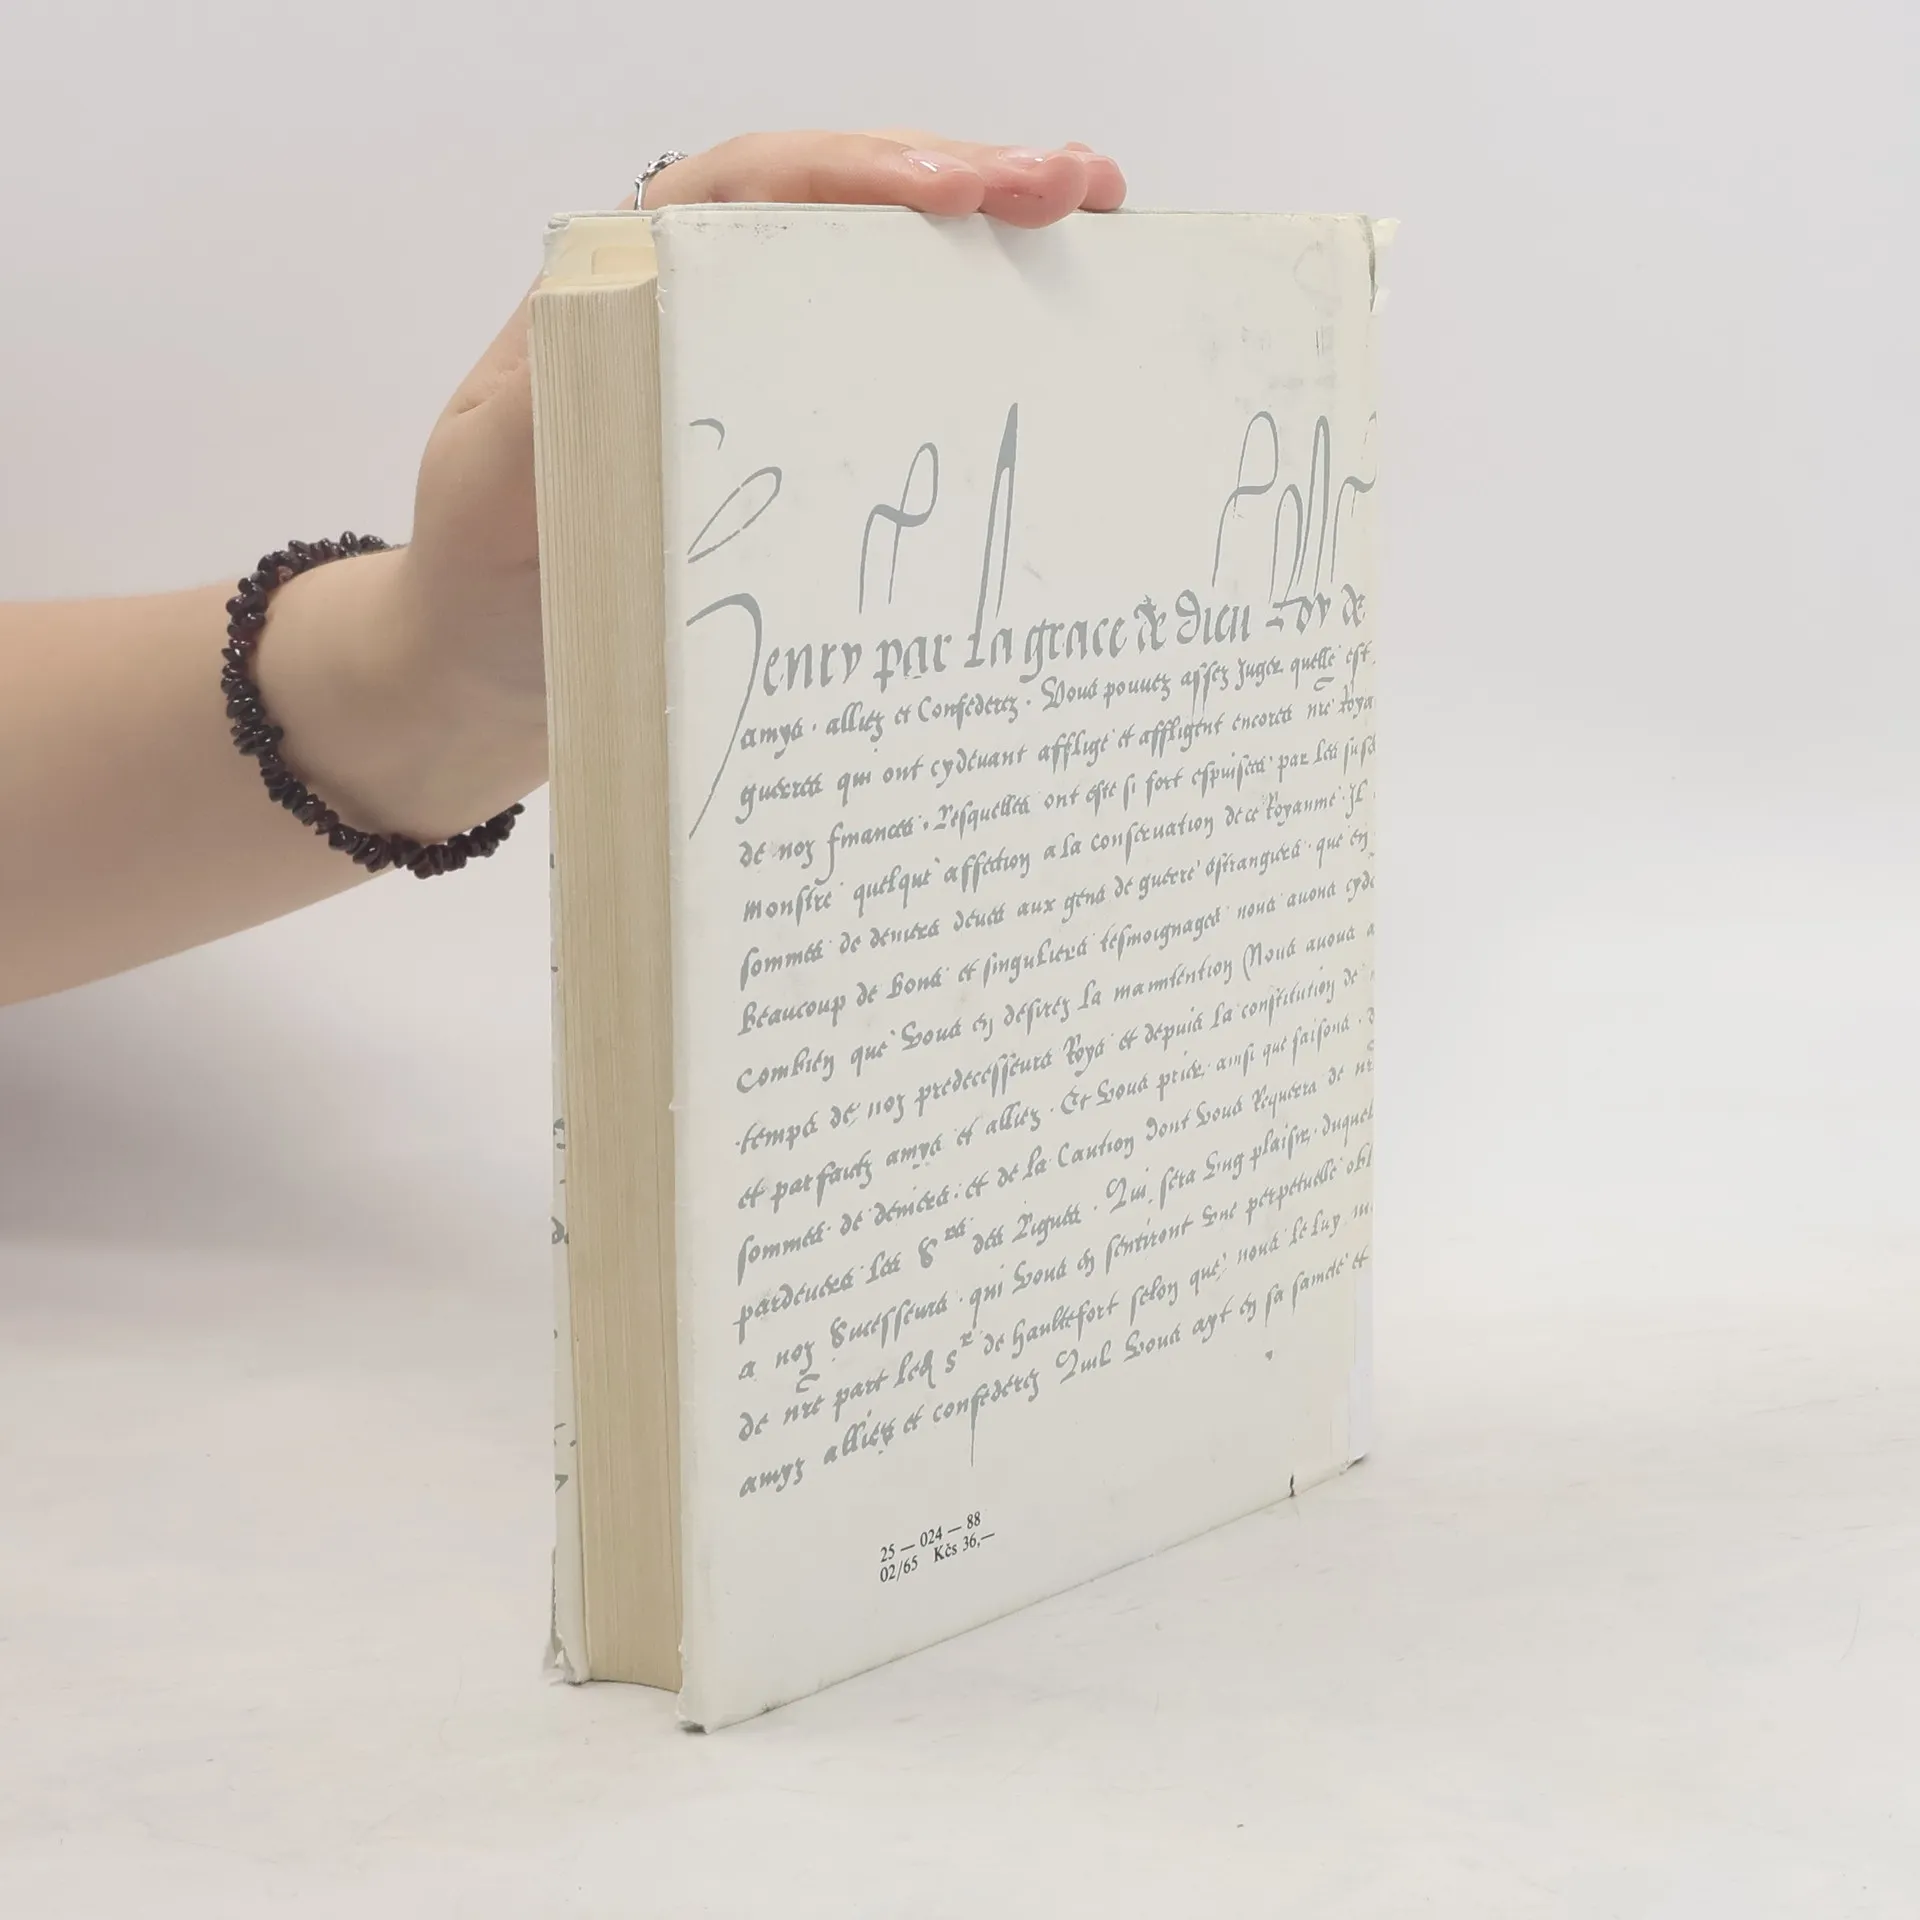 Henry par la grace de dieu Roy de
amys · alliez et Confederez · Vous pouvez assez Juger quelle est
guerres qui ont cydevant afflige et affligent encores nre Roya
de noz finances · Lesquelles ont este si fort espuisees par les
monstre quelque affection a la conservation de ce Royaume · Il
sommes de deniers deues aux gens de guerre estrangiers · que en
beaucoup de bons et singuliers tesmoignages nous avons cyde
Combien que vous en desirez la manutention Nous avons a
temps de noz predecesseurs Roys et depuis la constitution de
et parfaictz amys et alliez · Et vous prier ainsi que faisons ·
sommes de deniers · et de la Caution dont vous Requerra de nr
pardevers les Srs des Ligues · Qui sera ung plaisir duquel
a noz Successeurs · qui vous en sentiront une perpetuelle obl
de nre part led Sr de hautefort selon que nous le luy
amys alliez et confederez Quil vous ayt en sa saincte et
25 — 024 — 88
02/65 Kčs 36,—